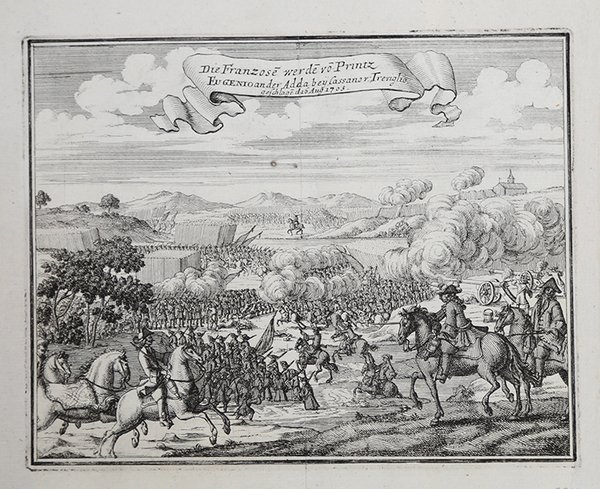 Die Franzosē werdē vō Printz
EUGENIO an der Adda bey Cassano r. Treviglio
geschlagē d. 16 Aug. 1705.